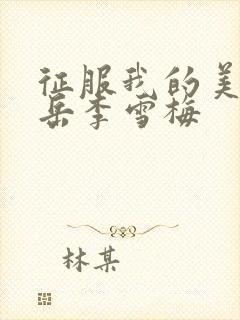 征服我的美
岳李雪梅
林某